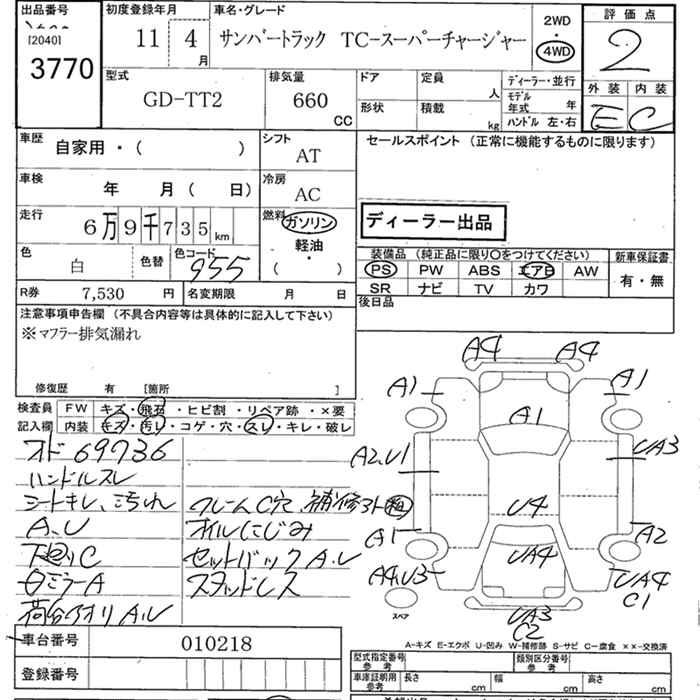 出品番号
[2040]
3770
初度登録年月
11 4 月
車名・グレード
サンバートラック TC-スーパーチャージャー
2WD
4WD
評価点
2
外装 内装
E C
型式
GD-TT2
排気量
660 CC
ドア
定員
人
形状
積載
kg
ディーラー・並行
モデル年式 年
ハンドル 左・右
車歴
自家用・( )
シフト
AT
車検
年 月 ( 日)
冷房
AC
走行
6万9千735 km
燃料
ガソリン
軽油・
( )
色
白
色替
色コード
955
R券
7,530 円
名変期限 月 日
セールスポイント (正常に機能するものに限ります)
ディーラー出品
装備品 (純正品に限り○をつけてください)
PS PW ABS エアB AW
SR ナビ TV カワ
新車保証書
有・無
後日品
注意事項申告欄 (不具合内容等は具体的に記入して下さい)
※マフラー排気漏れ
修復歴 有 [箇所 ]
検査員記入欄
FW キズ・飛石・ヒビ割・リペア跡・×要
内装 キズ・汚レ・コゲ・穴・スレ・キレ・破レ
オド 69736
ハンドルスレ
シートキレ、汚れ
A、U
下廻りC
白ミラーA
荷台アオリA、U
フレームC穴、補修アト粗
オイルにじみ
セットバックA、U
スタッドレス
A4 A4
A1 A1
A1
A2、U1
UA3
U4
A1
A2
UA4
A4、U3
UA4
C1
スペア
UA3
C2
A-キズ E-エクボ U-凹み W-補修跡 S-サビ C-腐食 ××-交換済
車台番号
010218
登録番号
型式指定番号 参考
類別区分番号 参考
車庫証明用 参考
長さ cm
幅 cm
高さ cm